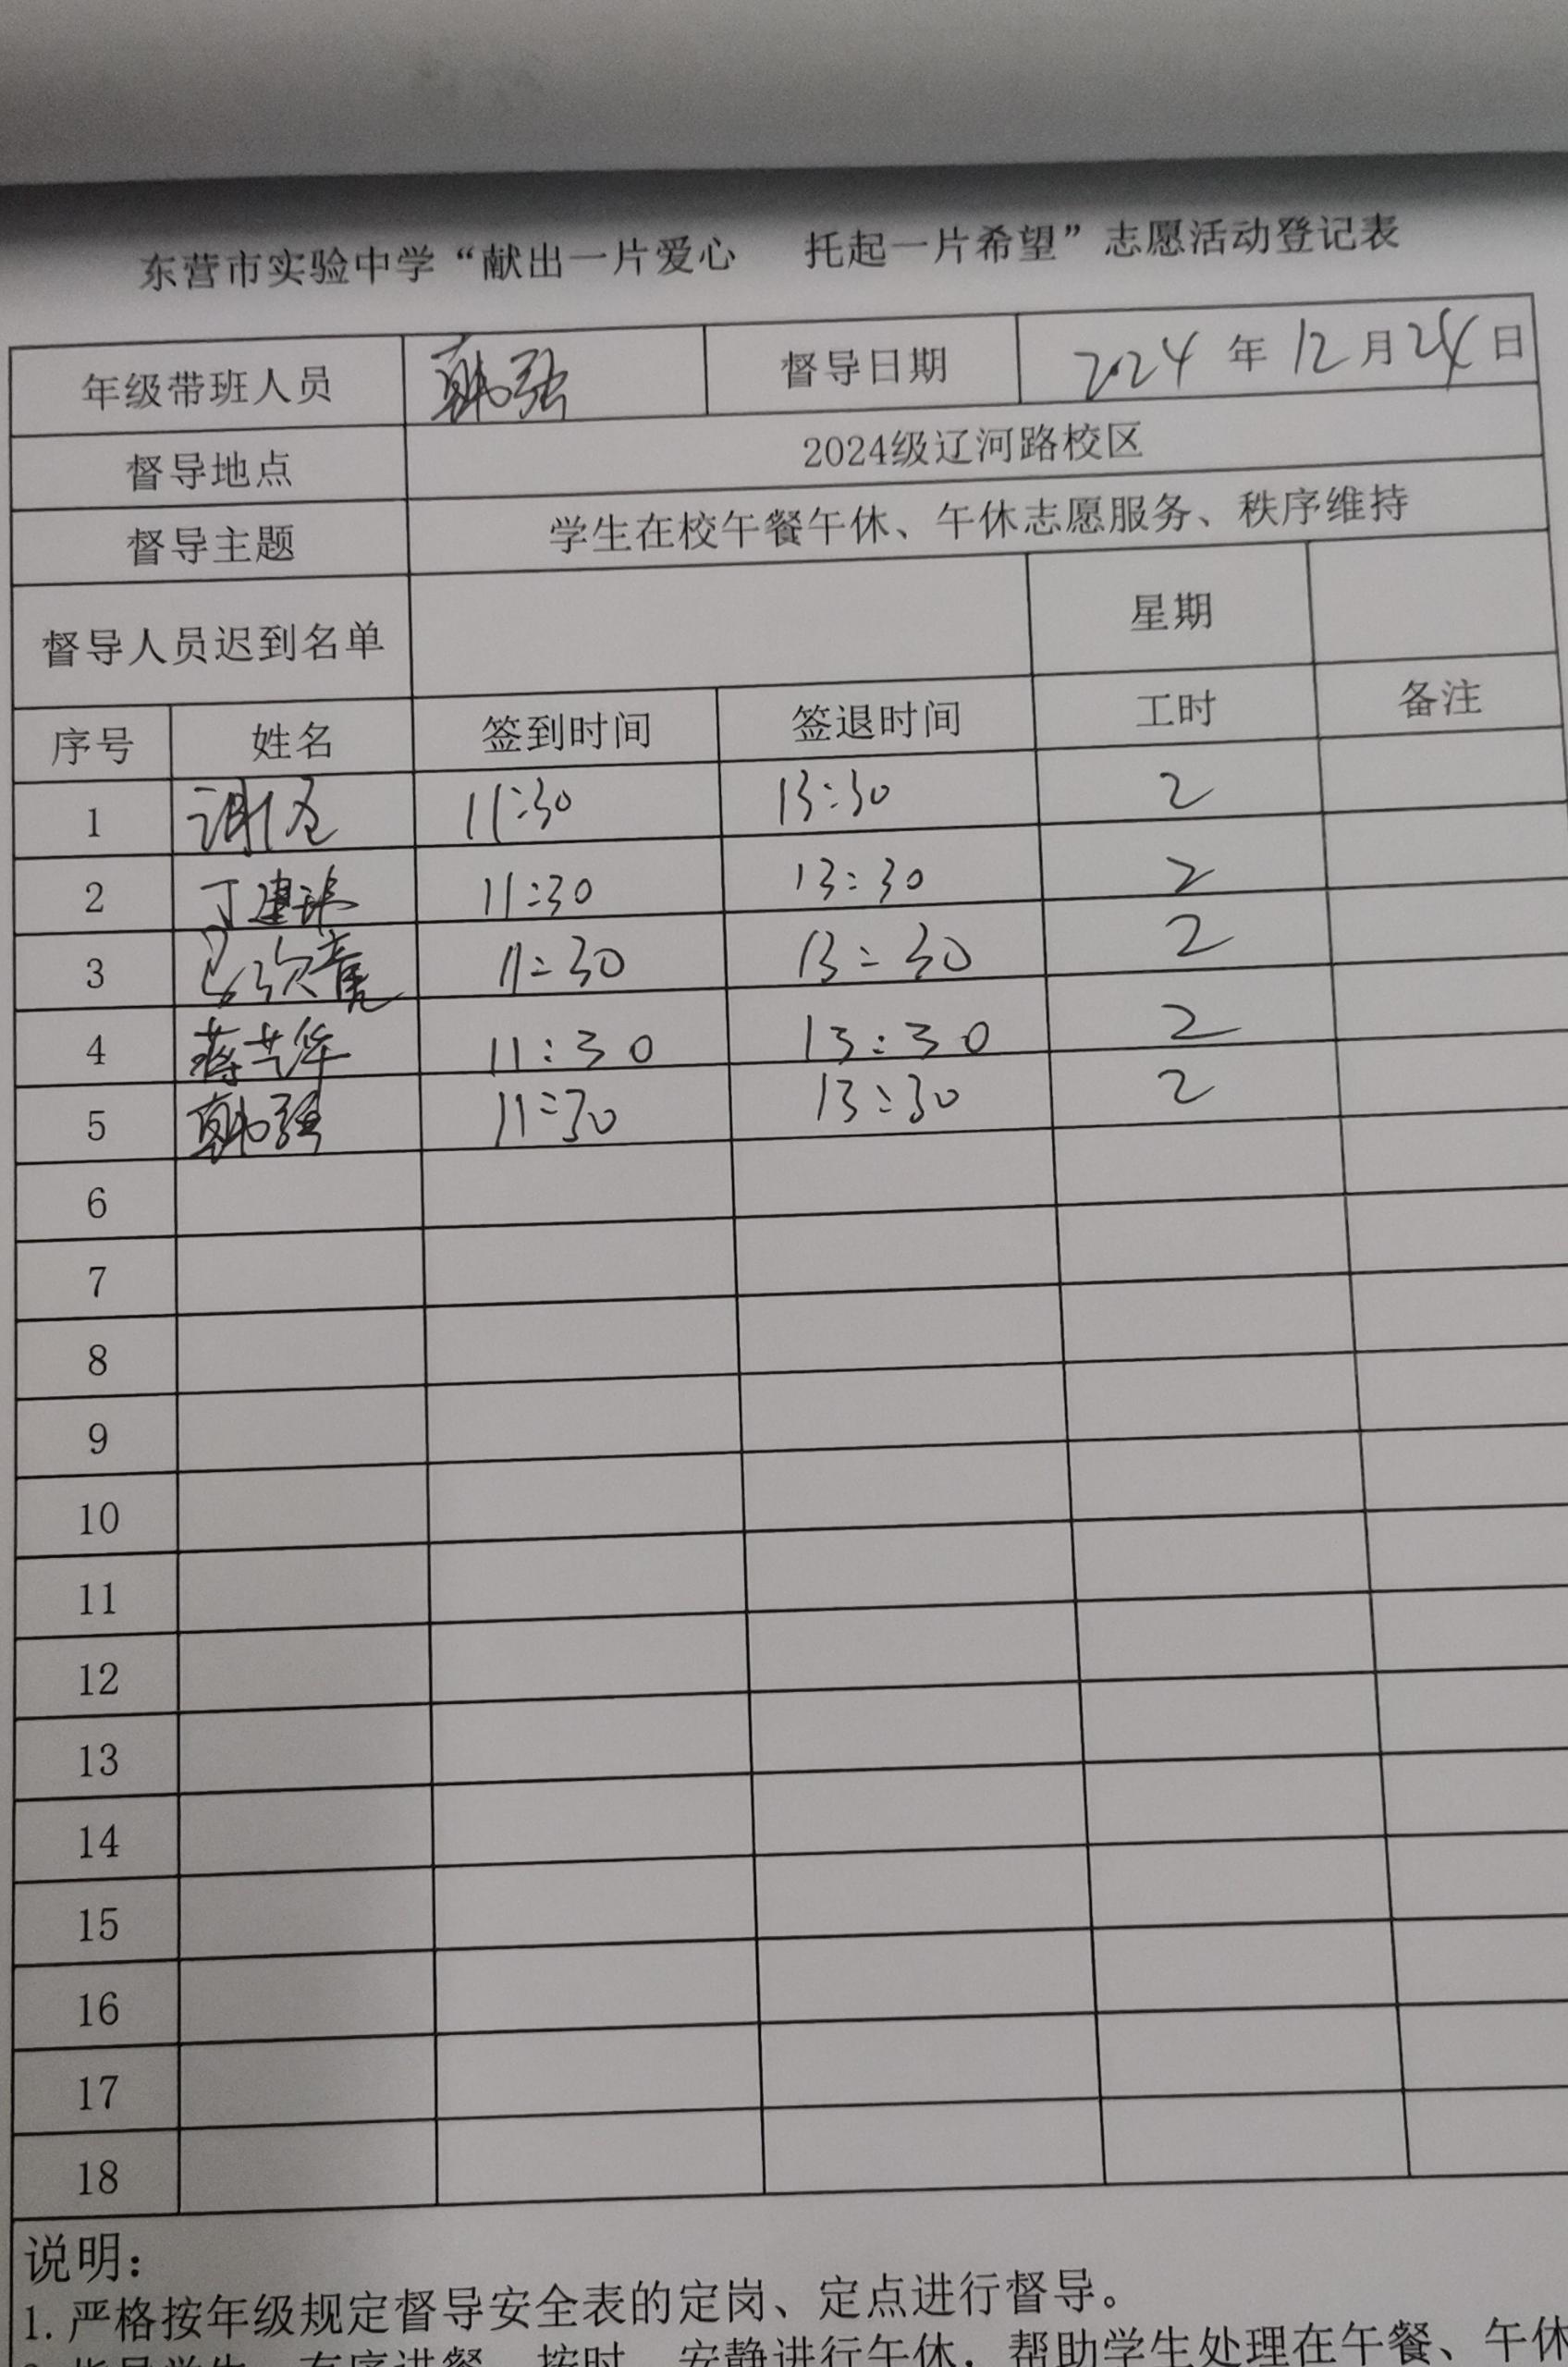 东营市实验中学“献出一片爱心 托起一片希望”志愿活动登记表
年级带班人员 韩强 督导日期 2024年12月24日
督导地点 2024级辽河路校区
督导主题 学生在校午餐午休、午休志愿服务、秩序维持
督导人员迟到名单 星期
序号 姓名 签到时间 签退时间 工时 备注
1 11:30 13:30 2
2 丁建 11:30 13:30 2
3 11:30 13:30 2
4 蒋 华 11:30 13:30 2
5 韩强 11:30 13:30 2
6
7
8
9
10
11
12
13
14
15
16
17
18
说明：
1.严格按年级规定督导安全表的定岗、定点进行督导。
指导学生 有序进餐 按时 安静进行午休，帮助学生处理在午餐、午休